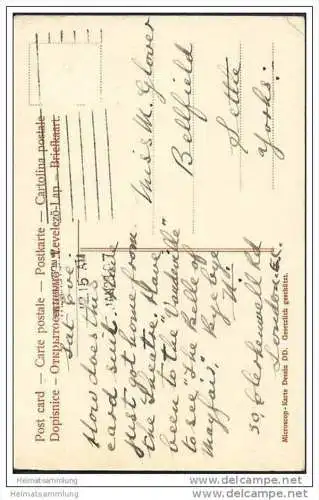 Post card — Carte postale — Postkarte — Cartolina postale
Dopisnice — Открытое письмо — Levelező-Lap — Briefkaart.
Sat eve
How does this
card suit. Have
just got home from
the Theatre. Have
been to the "Vaudeville"
to see "The Belle of
Mayfair". Bye bye
M.
30, Clerkenwell Rd
London E.C.
12.15 AM
Miss M. Glover
Bellfield
Settle
Yorks.
Microscop-Karte Dessin DD. Gesetzlich geschützt.
Heimatsammlung
Heimatsammlung.com